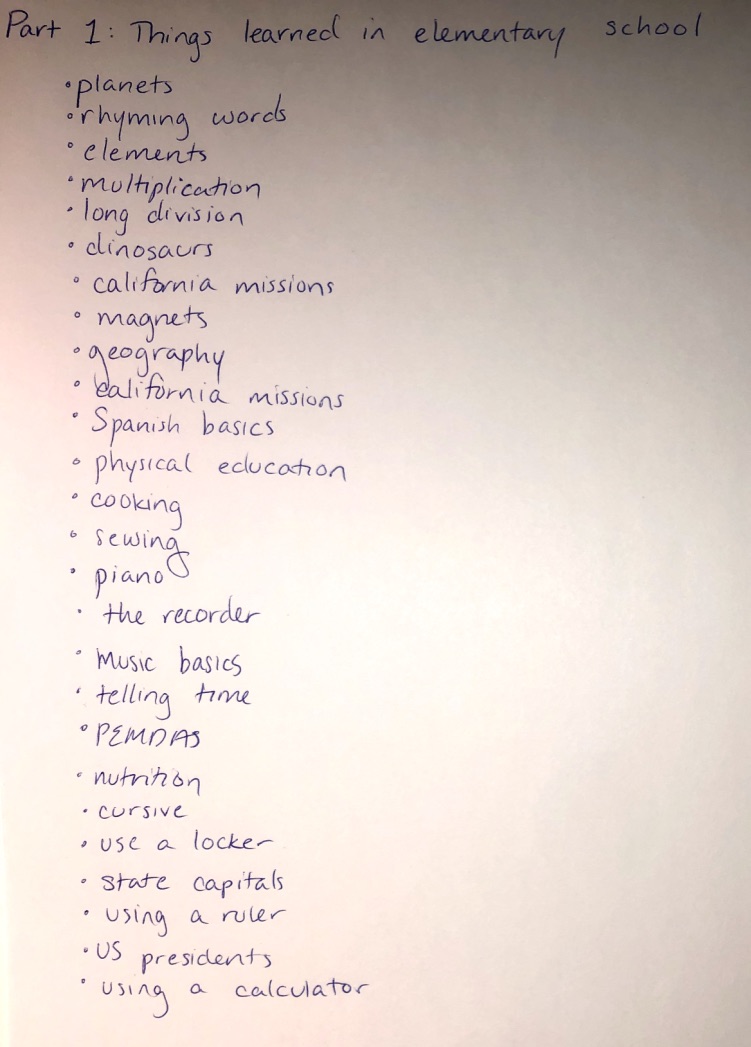 Part 1: Things learned in elementary school
• planets
• rhyming words
• elements
• multiplication
• long division
• dinosaurs
• california missions
• magnets
• geography
• california missions
• Spanish basics
• physical education
• cooking
• sewing
• piano
• the recorder
• Music basics
• telling time
• PEMDAS
• nutrition
• cursive
• use a locker
• state capitals
• using a ruler
• US presidents
• using a calculator